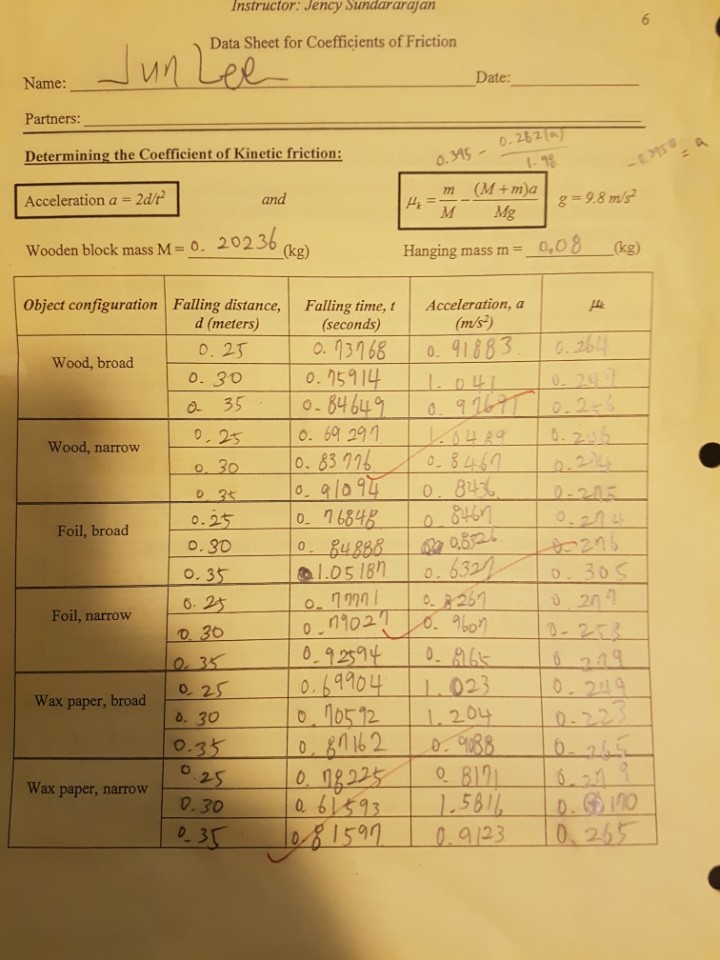 Instructor: Jency Sundararajan
6
Data Sheet for Coefficients of Friction
Name: Jun Lee Date:
Partners:
0.395 - 0.282(a) / 1.98
Determining the Coefficient of Kinetic friction:
Acceleration a = 2d/t² and μk = m/M - (M + m)a/Mg g = 9.8 m/s²
Wooden block mass M = 0.20236 (kg) Hanging mass m = 0.08 (kg)
Object configuration Falling distance, d (meters) Falling time, t (seconds) Acceleration, a (m/s²) μk
Wood, broad
0.25 0.73768 0.91883 0.264
0.30 0.75914 1.041 0.247
0.35 0.84649 0.97691 0.256
Wood, narrow
0.25 0.69297 1.0489 0.246
0.30 0.83776 0.8467 0.274
0.35 0.91094 0.8436 0.275
Foil, broad
0.25 0.76848 0.8467 0.274
0.30 0.84888 0.8526 0.276
0.35 1.05187 0.6327 0.305
Foil, narrow
0.25 0.77771 0.8267 0.277
0.30 0.79027 0.9607 0.258
0.35 0.92594 0.8165 0.279
Wax paper, broad
0.25 0.69904 1.023 0.249
0.30 0.70592 1.204 0.223
0.35 0.87162 0.9088 0.265
Wax paper, narrow
0.25 0.78225 0.8171 0.279
0.30 0.61593 1.5816 0.170
0.35 0.81597 0.9123 0.265